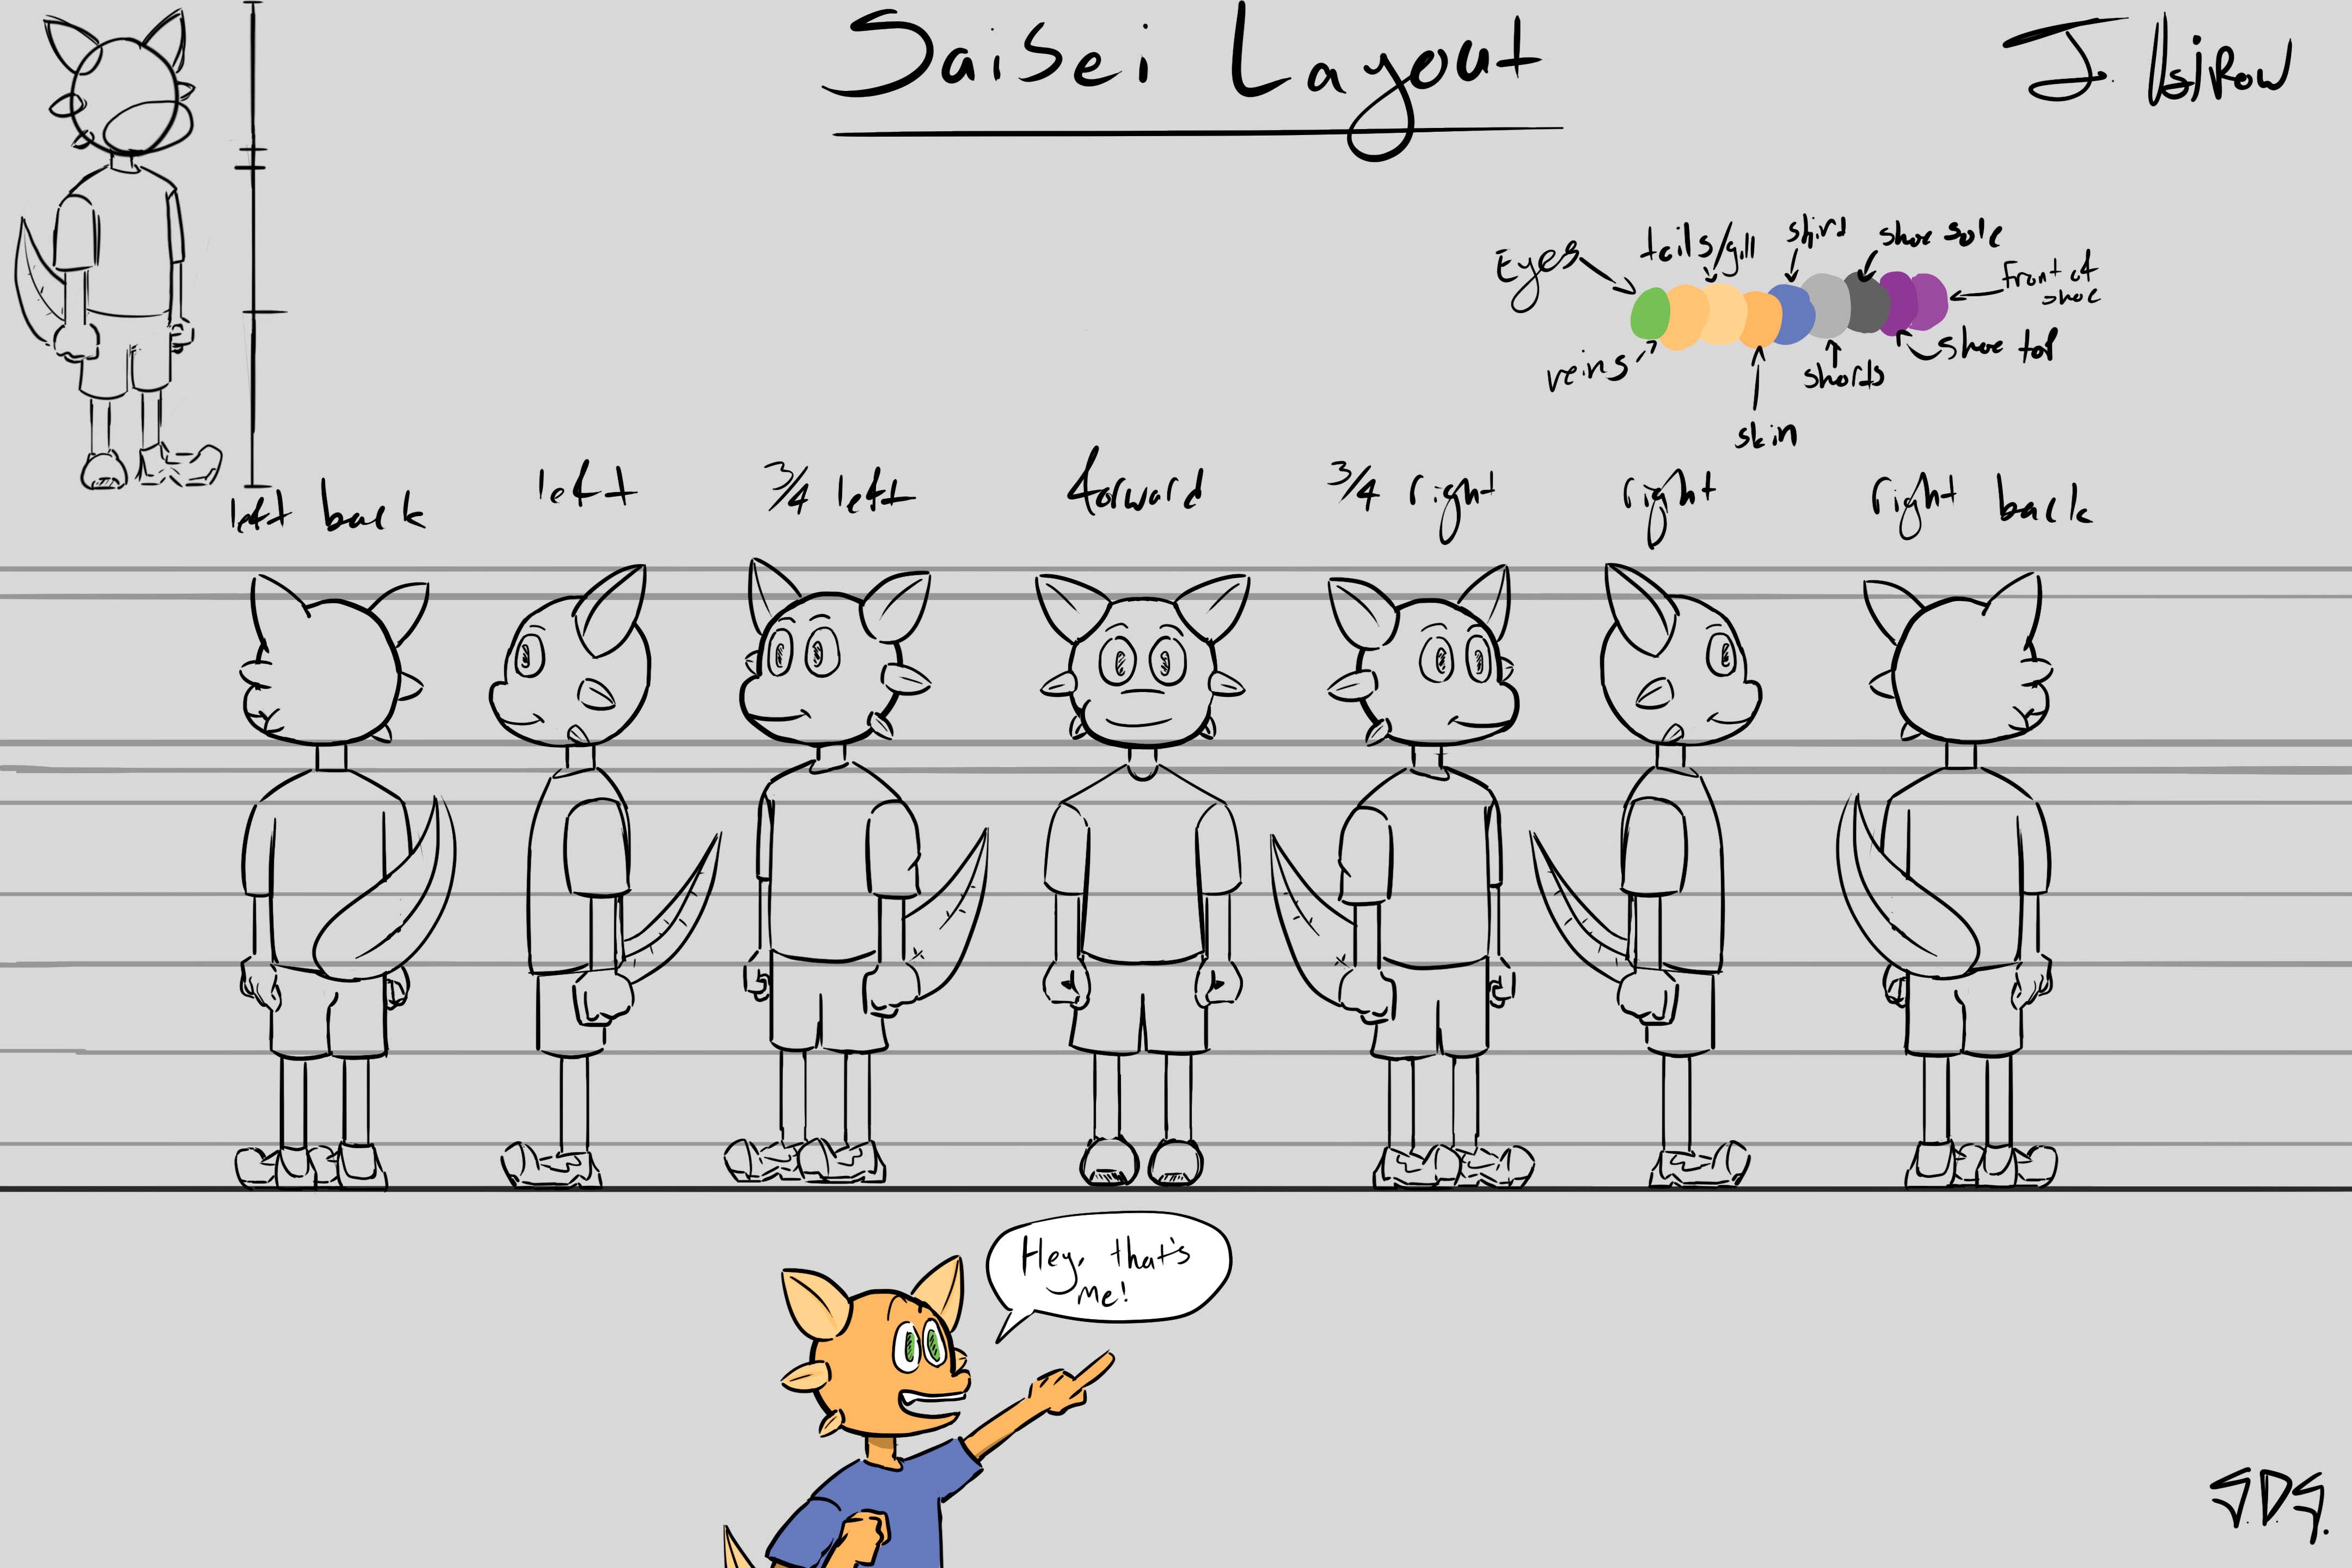 Saisei Layout
Eyes
tails/gill
shirt
shoe sole
front of
shoe
veins
skin
shorts
shoe top
left back
left
3/4 left
forward
3/4 right
right
right back
Hey, that's
me!
S.D.S.